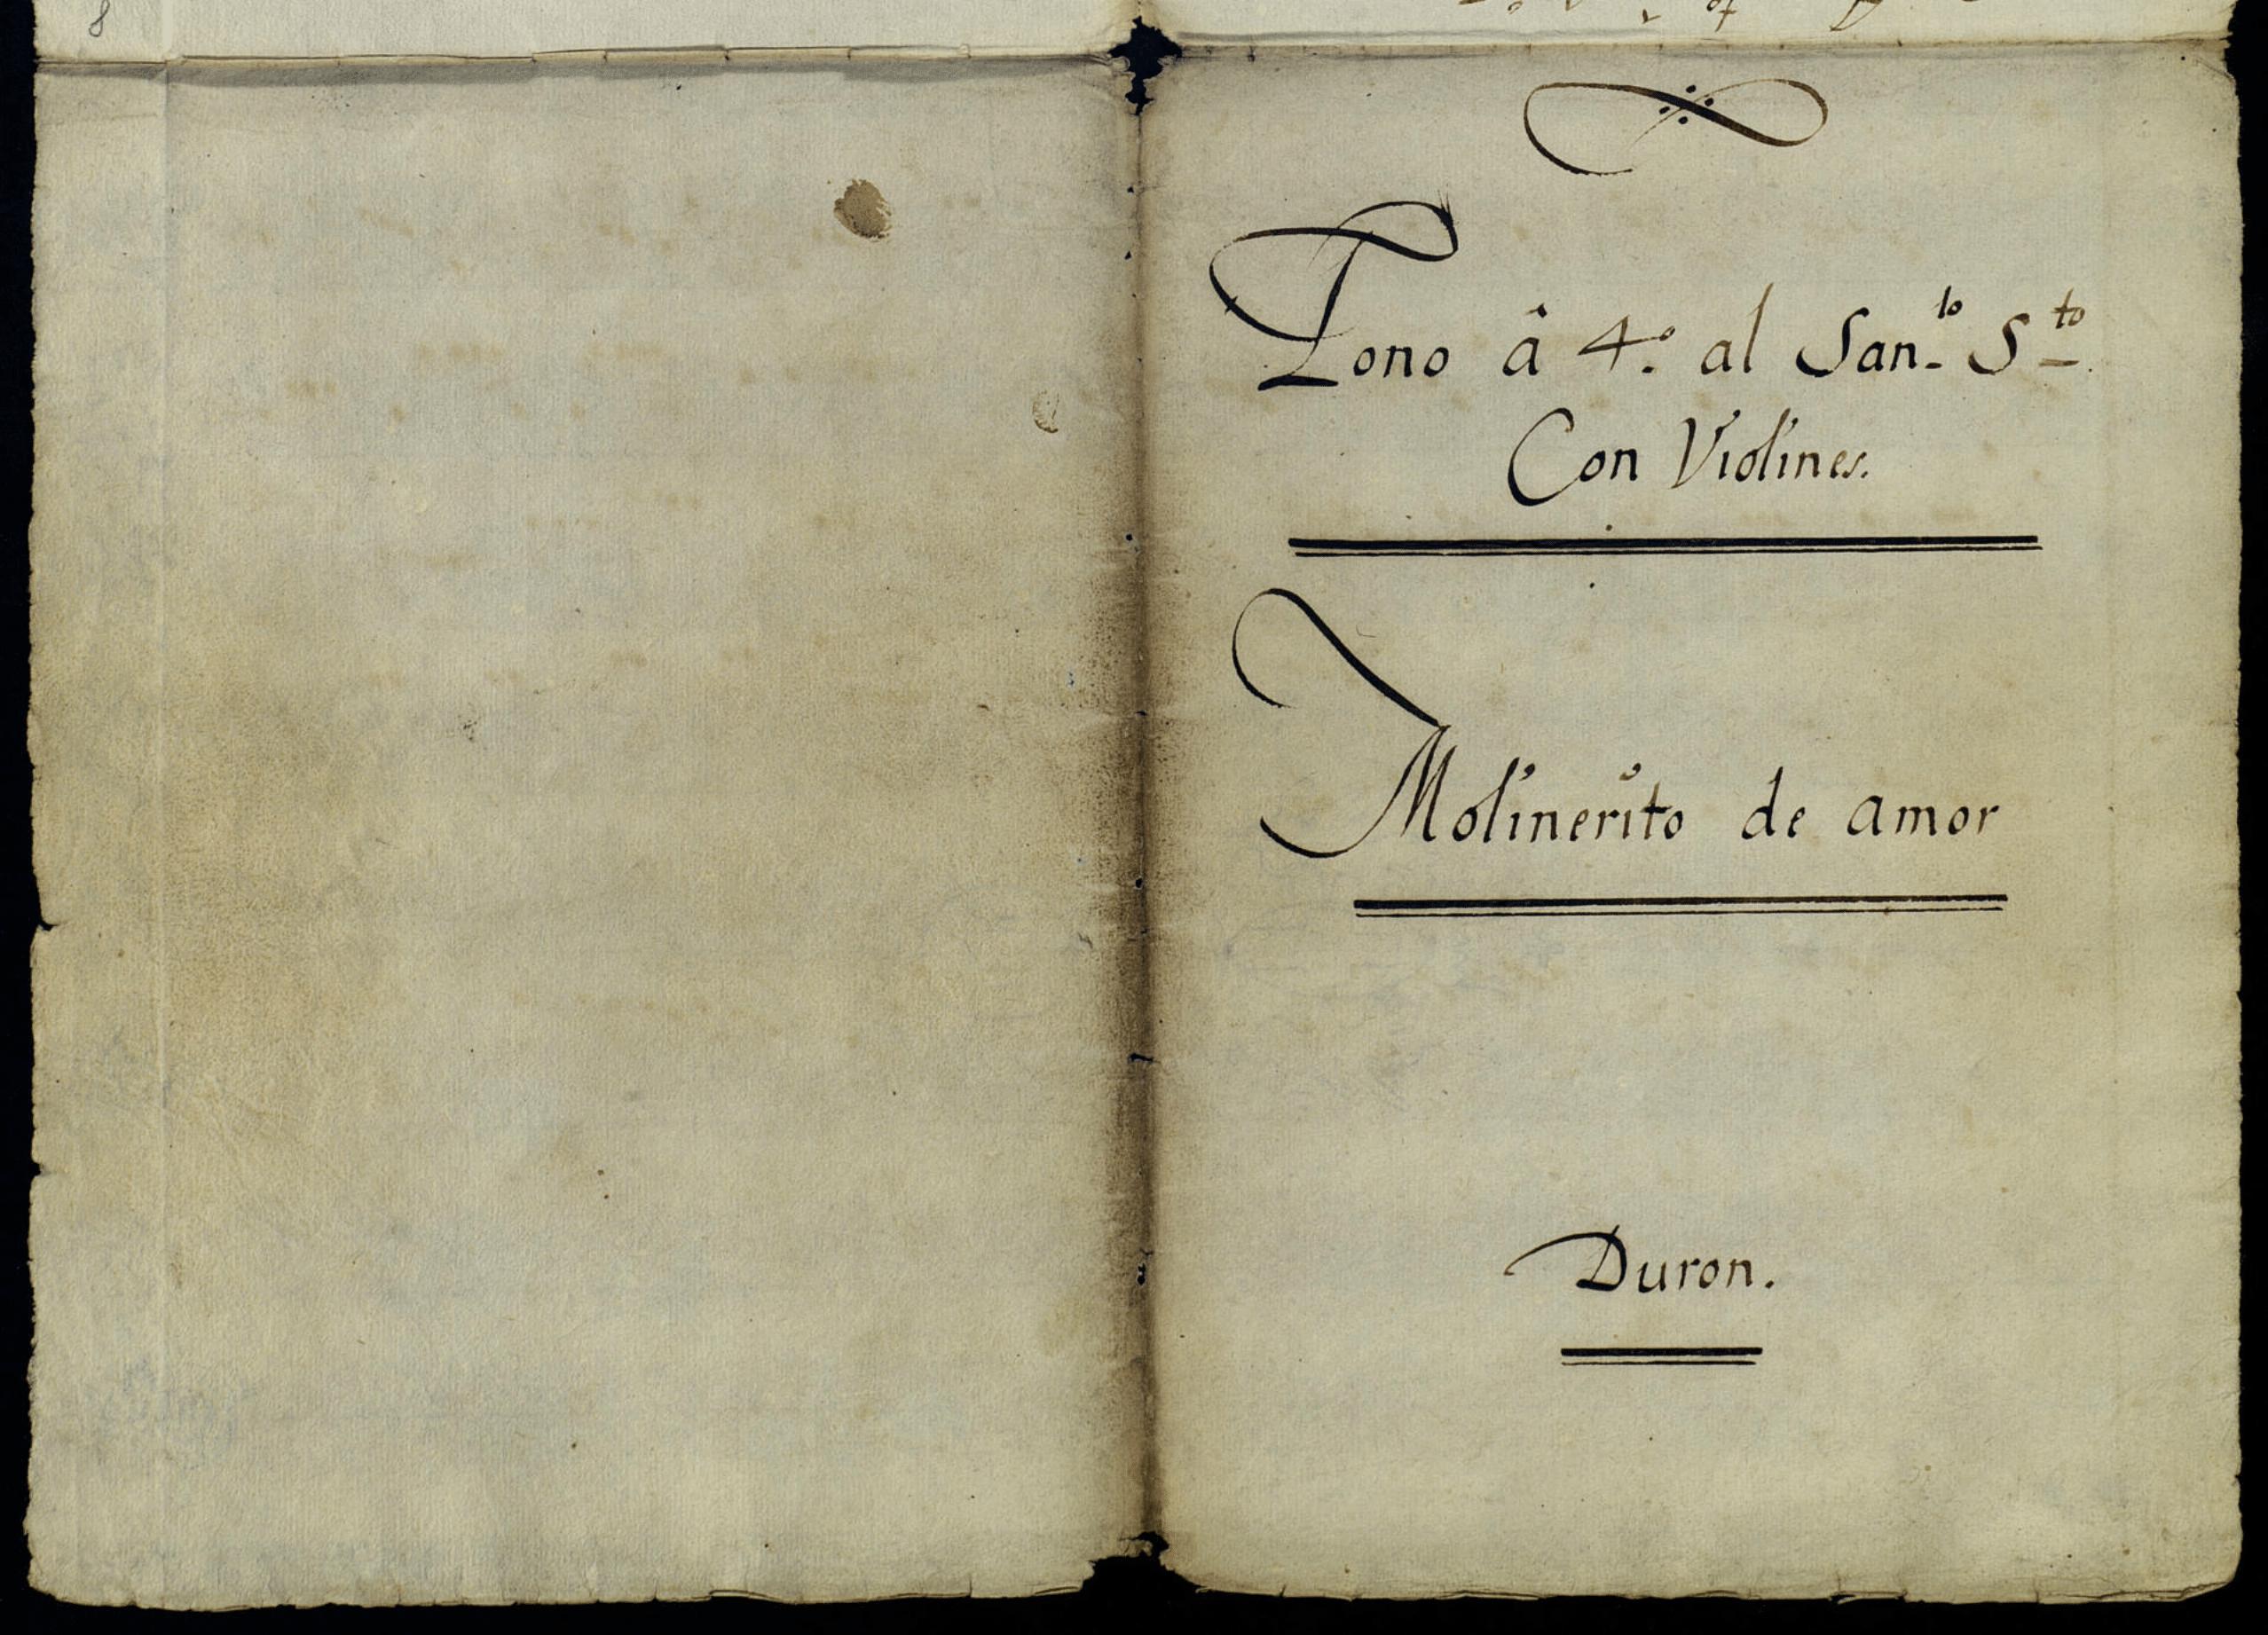 8
Tono â 4.º al San.to S.to
Con Violines.
Molinerito de amor
Duron.